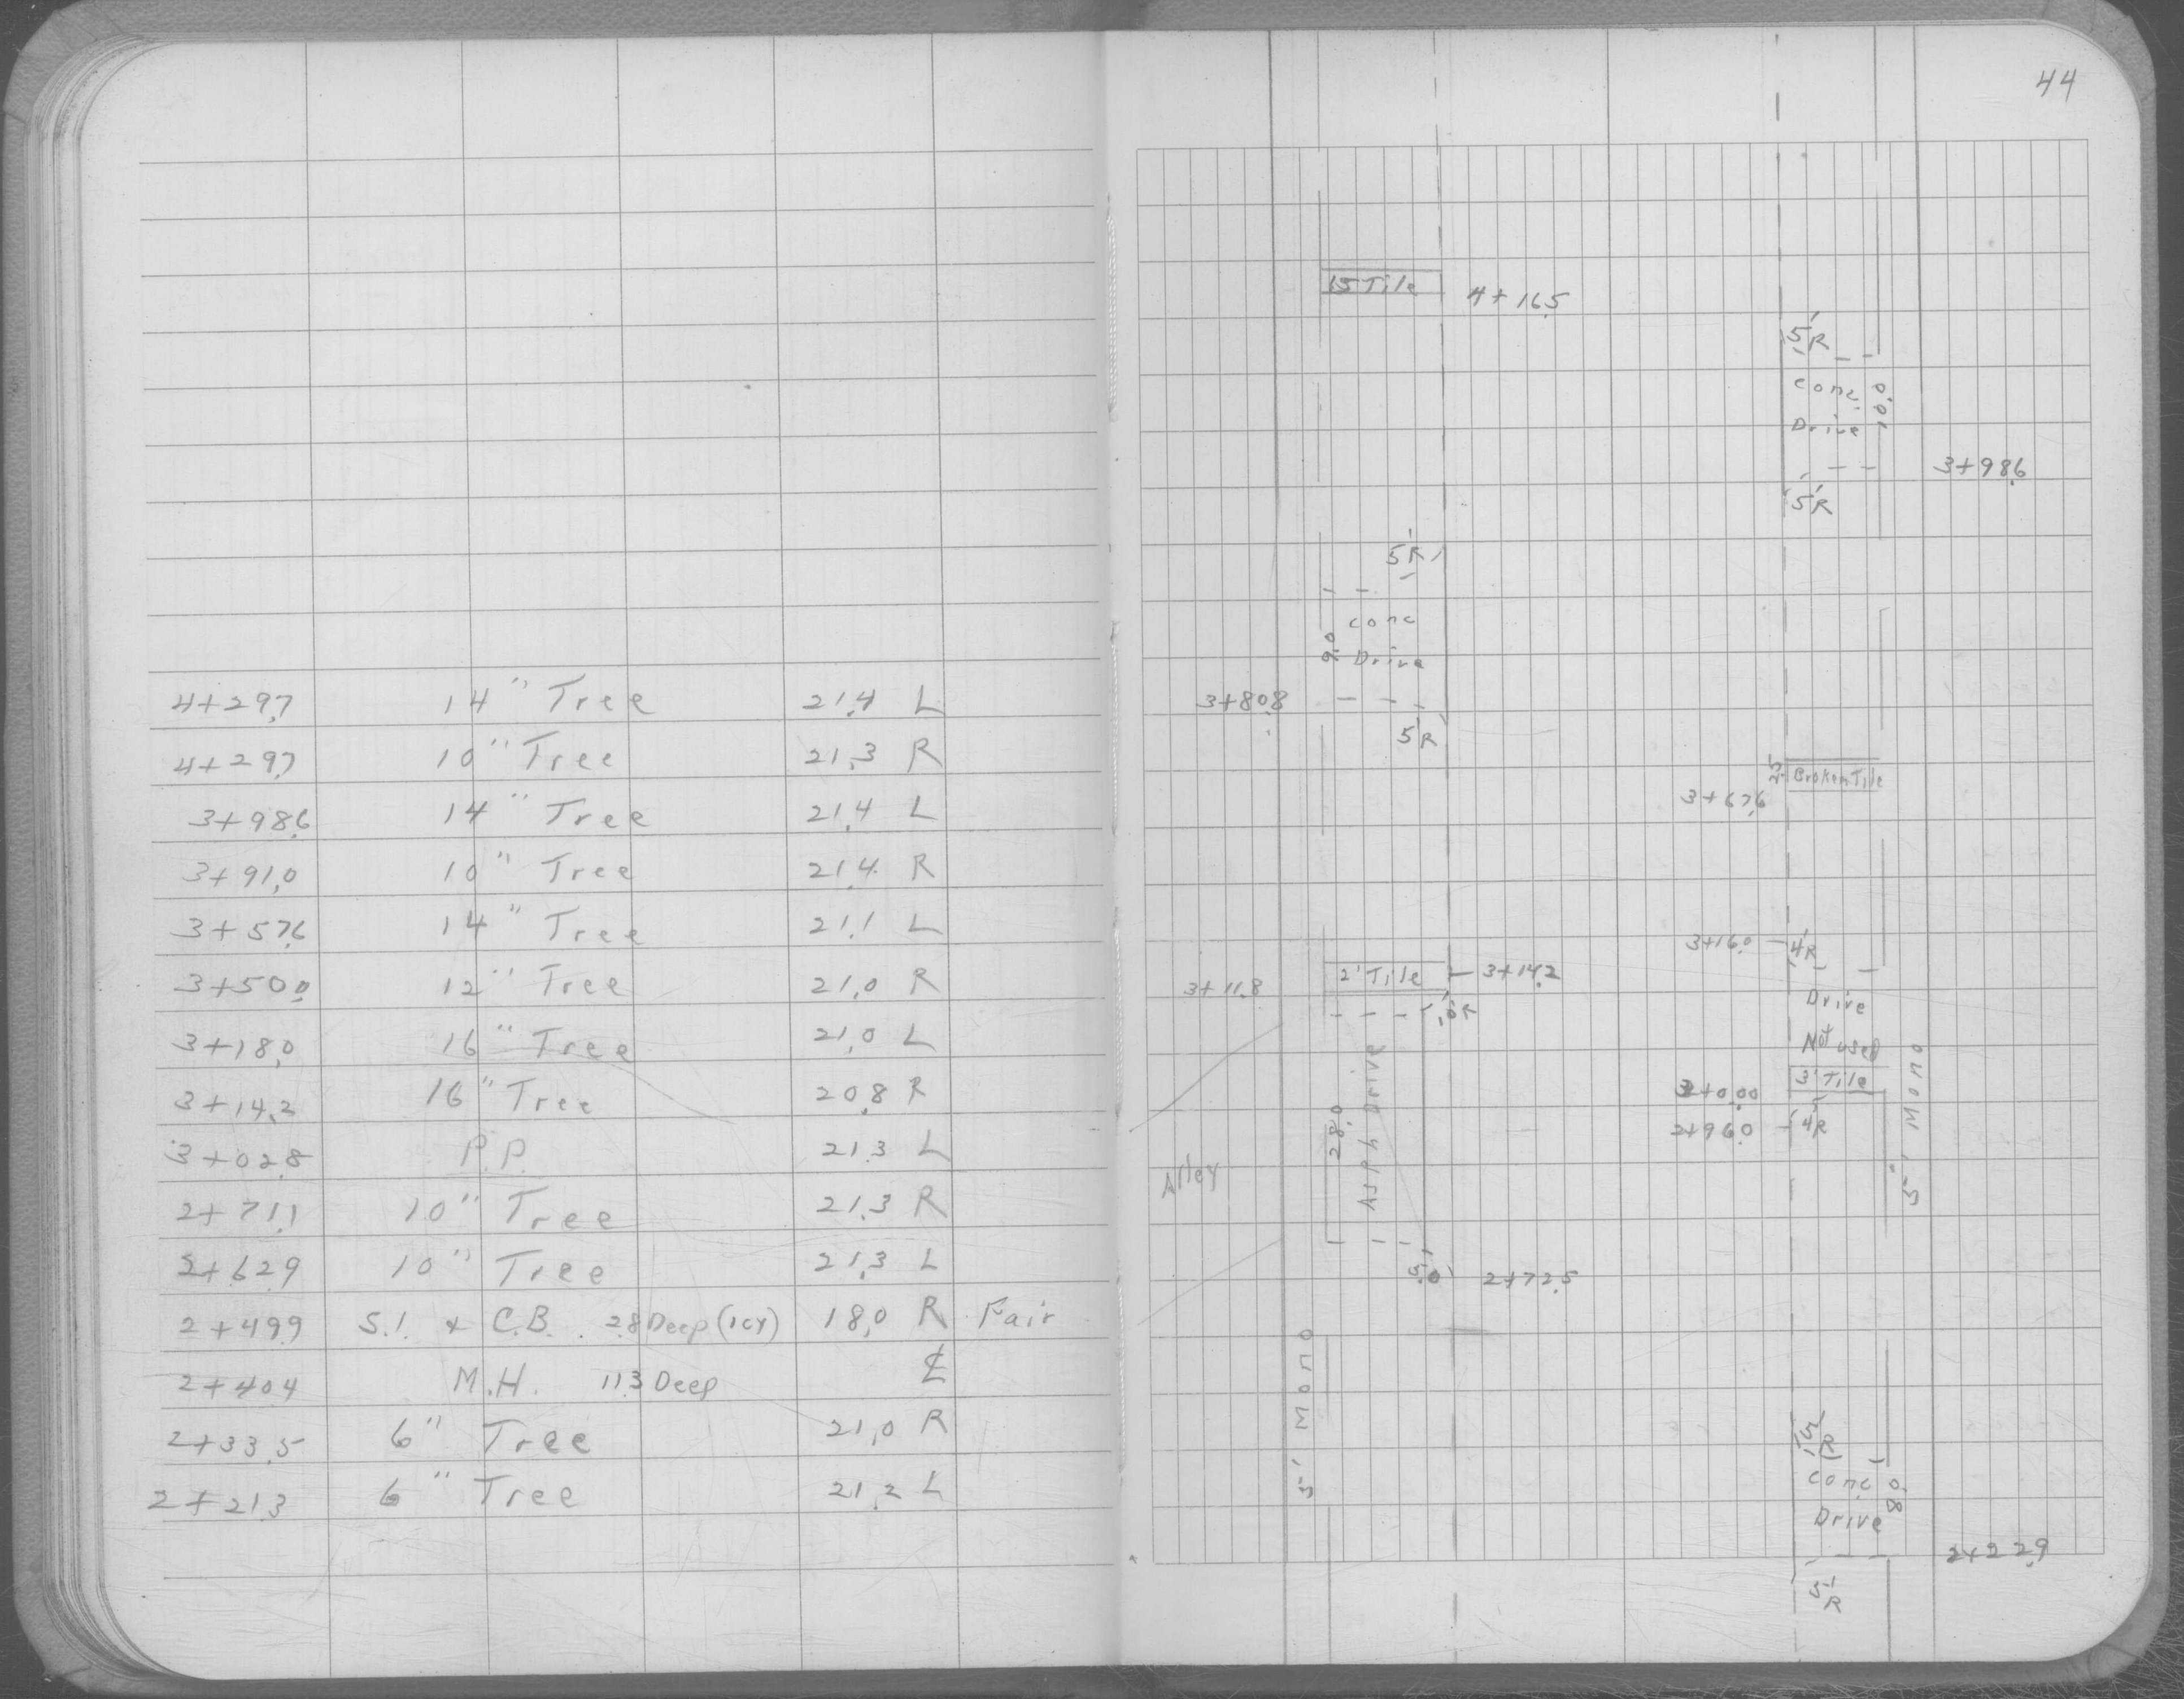 44
4+29.7 14" Tree 21.4 L
4+29.7 10" Tree 21.3 R
3+98.6 14" Tree 21.4 L
3+91.0 10" Tree 21.4 R
3+57.6 14" Tree 21.1 L
3+50.0 12" Tree 21.0 R
3+18.0 16" Tree 21.0 L
3+14.2 16" Tree 20.8 R
3+02.8 P.P. 21.3 L
2+71.1 10" Tree 21.3 R
2+62.9 10" Tree 21.3 L
2+49.9 S.I. & C.B. 2.8 Deep (ICY) 18.0 R Fair
2+40.4 M.H. 11.3 Deep ℄
2+33.5 6" Tree 21.0 R
2+21.3 6" Tree 21.2 L
15 Tile 4+16.5
5'R
Conc. 10.0
Drive
3+98.6
5'R
5'R
Conc
9.0 Drive
3+80.8
5'R
2.5 Broken Tile
3+67.6
3+16.0 4'R
2' Tile 3+14.2
3+11.8
Drive
Not used
3' Tile
3+0.00
2+96.0 4'R
5' Mono
28.0
Asph Drive
Alley
5.0' 2+72.5
5' Mono
5'R
Conc 8.0
Drive
2+22.9
5'R